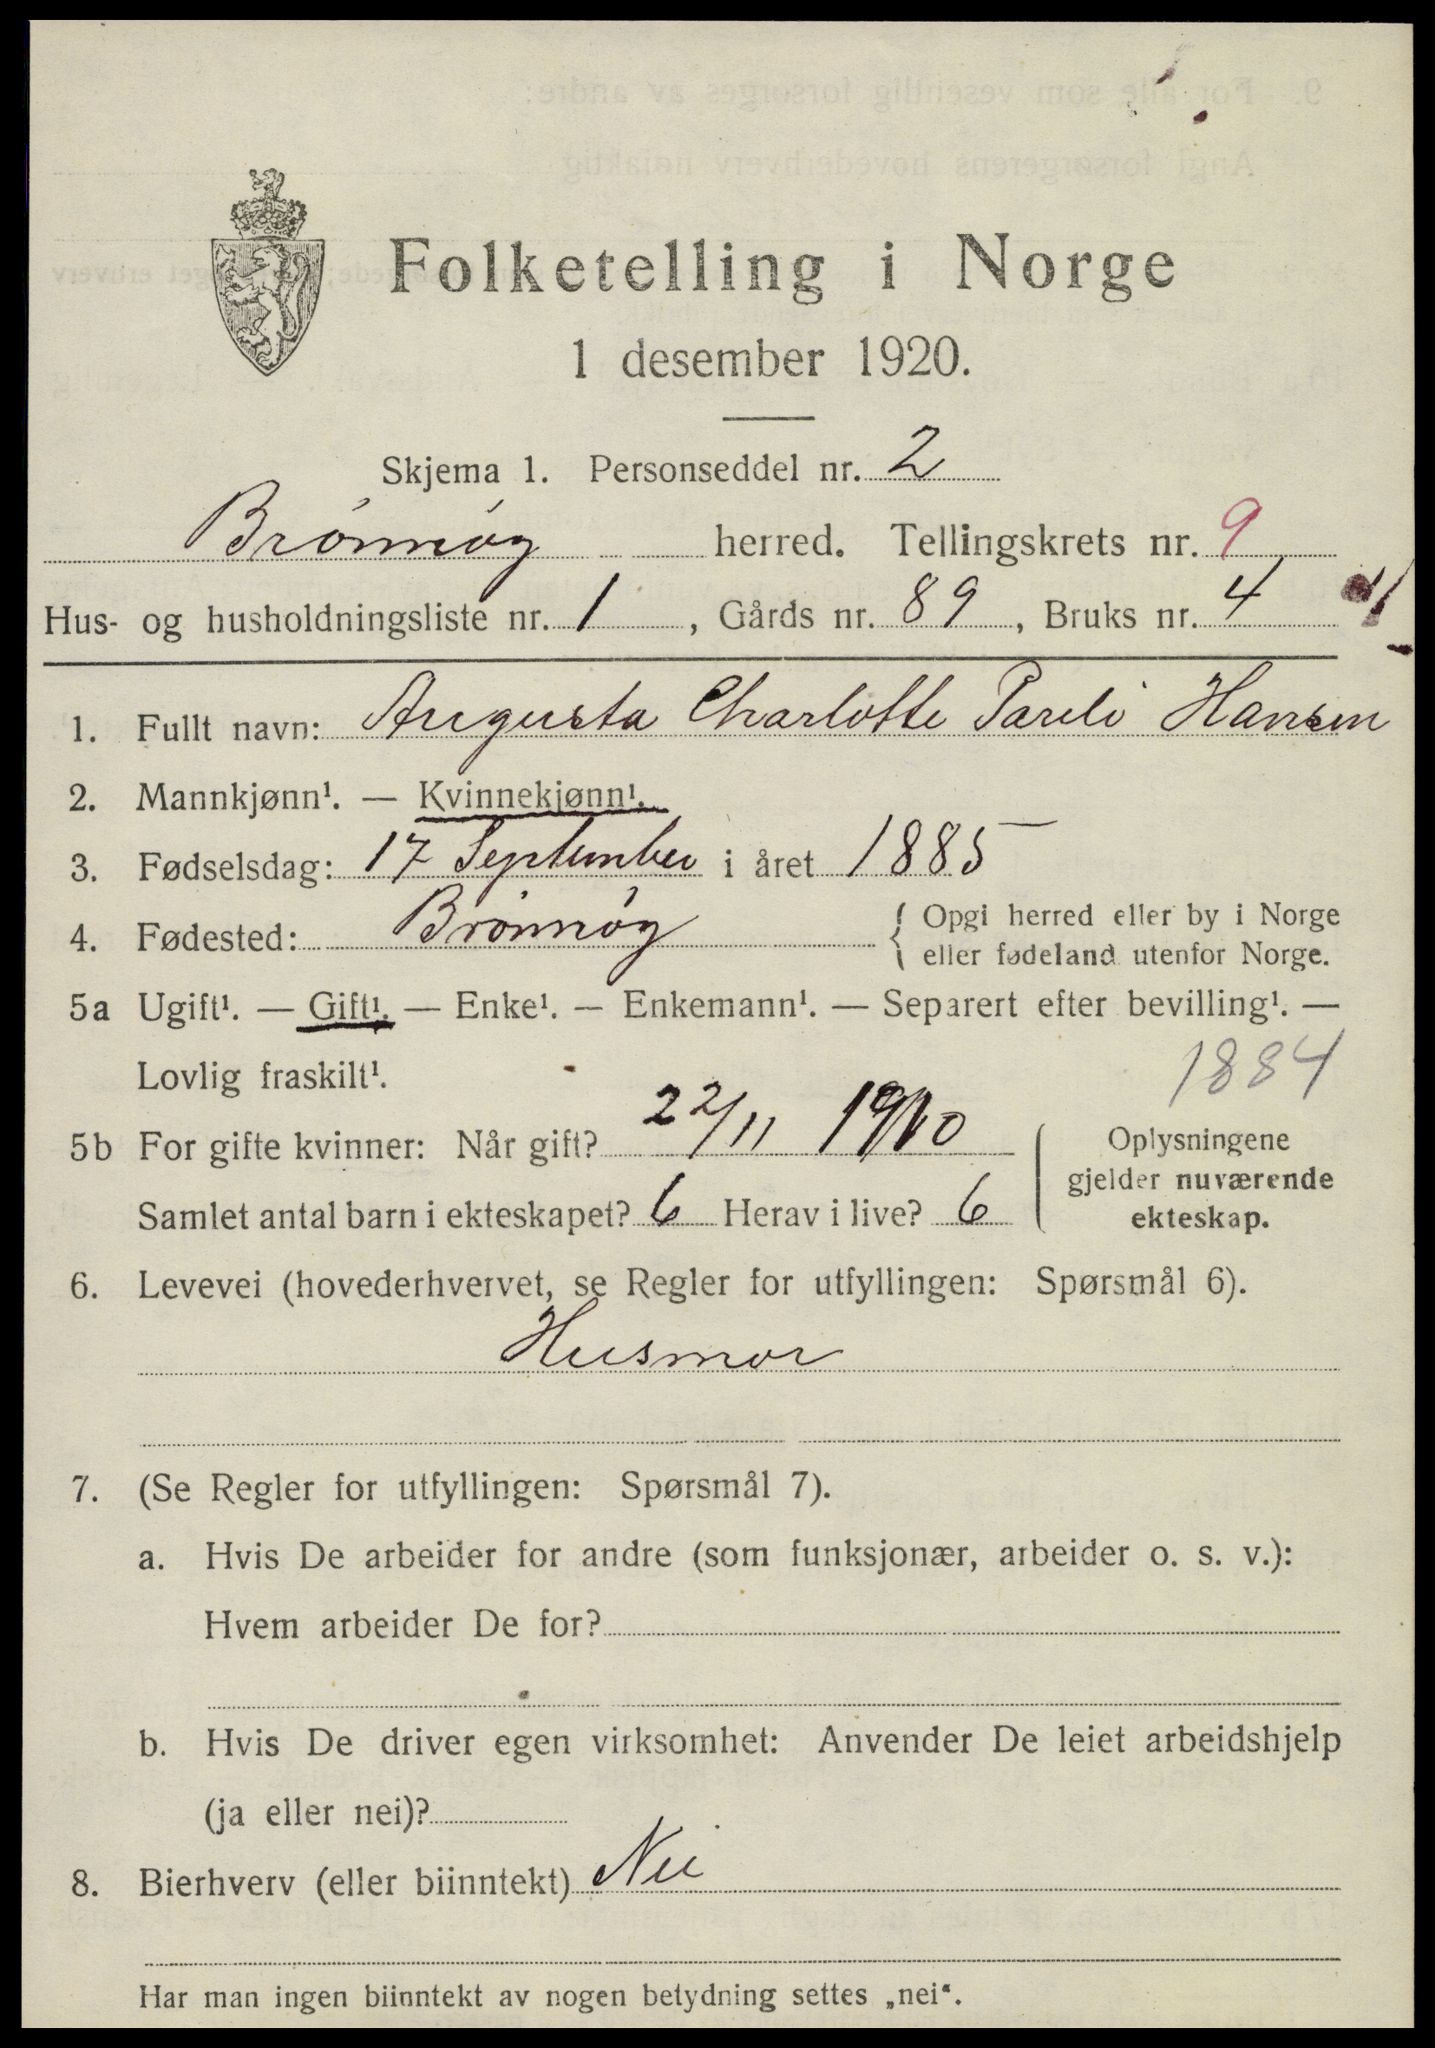 Folketelling i Norge
1 desember 1920.
Skjema 1. Personseddel nr. 2
Brønnøy herred. Tellingskrets nr. 9
Hus- og husholdningsliste nr. 1, Gårds nr. 89, Bruks nr. 4
1. Fullt navn: Augusta Charlotte Pareli Hansen
2. Mannkjønn¹. — Kvinnekjønn¹.
3. Fødselsdag: 17 September i året 1885
4. Fødested: Brønnøy { Opgi herred eller by i Norge
eller fødeland utenfor Norge.
5a Ugift¹. — Gift¹. — Enke¹. — Enkemann¹. — Separert efter bevilling¹. —
Lovlig fraskilt¹. 1884
5b For gifte kvinner: Når gift? 22/11 1910
Samlet antal barn i ekteskapet? 6 Herav i live? 6
Oplysningene
gjelder nuværende
ekteskap.
6. Levevei (hovederhvervet, se Regler for utfyllingen: Spørsmål 6).
Husmor
7. (Se Regler for utfyllingen: Spørsmål 7).
a. Hvis De arbeider for andre (som funksjonær, arbeider o. s. v.):
Hvem arbeider De for?
b. Hvis De driver egen virksomhet: Anvender De leiet arbeidshjelp
(ja eller nei)?
8. Bierhverv (eller biinntekt) Nei
Har man ingen biinntekt av nogen betydning settes „nei“.